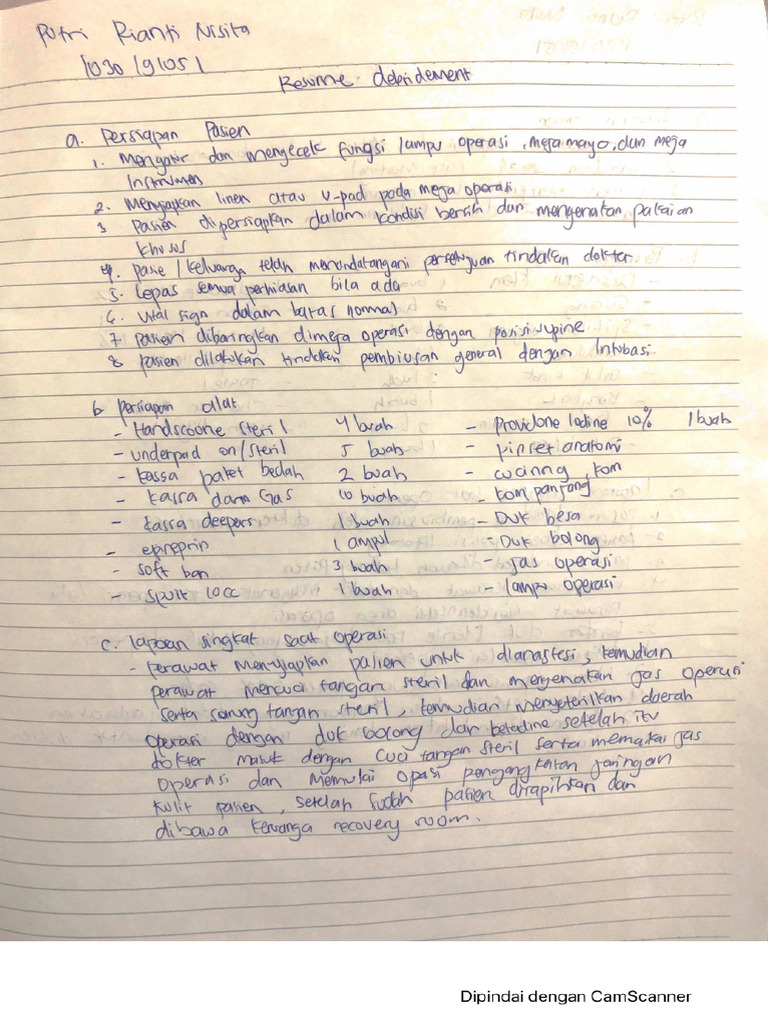 Putri Rianti Nisita
1030191051
Resume debridement
a. Persiapan Pasien
1. Mengatur dan mengecek fungsi lampu operasi, meja mayo, dan meja
Instrumen
2. Menyiapkan linen atau U-pad pada meja operasi
3 Pasien dipersiapkan dalam kondisi bersih dan mengenakan pakaian
khusos
4. pasie / keluarga telah menandatangani persetujuan tindakan dokter
5. Lepas semua perhiasan bila ada
6. Vital sign dalam batas normal
7 pasien dibaringkan dimeja operasi dengan posisi supine
8 pasien dilakukan tindakan pembiusan general dengan Intubasi.
b persiapan alat
- Handscoone steril 4 buah - Providone Iodine 10% 1 buah
- underpad on/steril 5 buah - pinset anatomi
- kassa paket bedah 2 buah - cucinng, kom
- kassa darm Gas 10 buah - kom panjang
- kassa deepers 1 buah - Duk besa
- epreprin 1 ampul - Duk bolong
- soft ban 3 buah - jas operasi
- spuit 10cc 1 buah - lampu operasi
c. lapoean singkat saat operasi
- perawat menyiapkan pasien untuk dianastesi, kemudian
perawat mencuci tangan steril dan mengenakan jas operasi
serta sarung tangan steril, kemudian menyeterilkan daerah
operasi dengan duk bolong dan betadine setelah itu
dokter masuk dengan cuci tangan steril serta memakai jas
operasi dan memulai opasi pengangkatan jaringan
kulit pasien, setelah sudah pasien dirapihkan dan
dibawa keruanga recovery room.
Dipindai dengan CamScanner